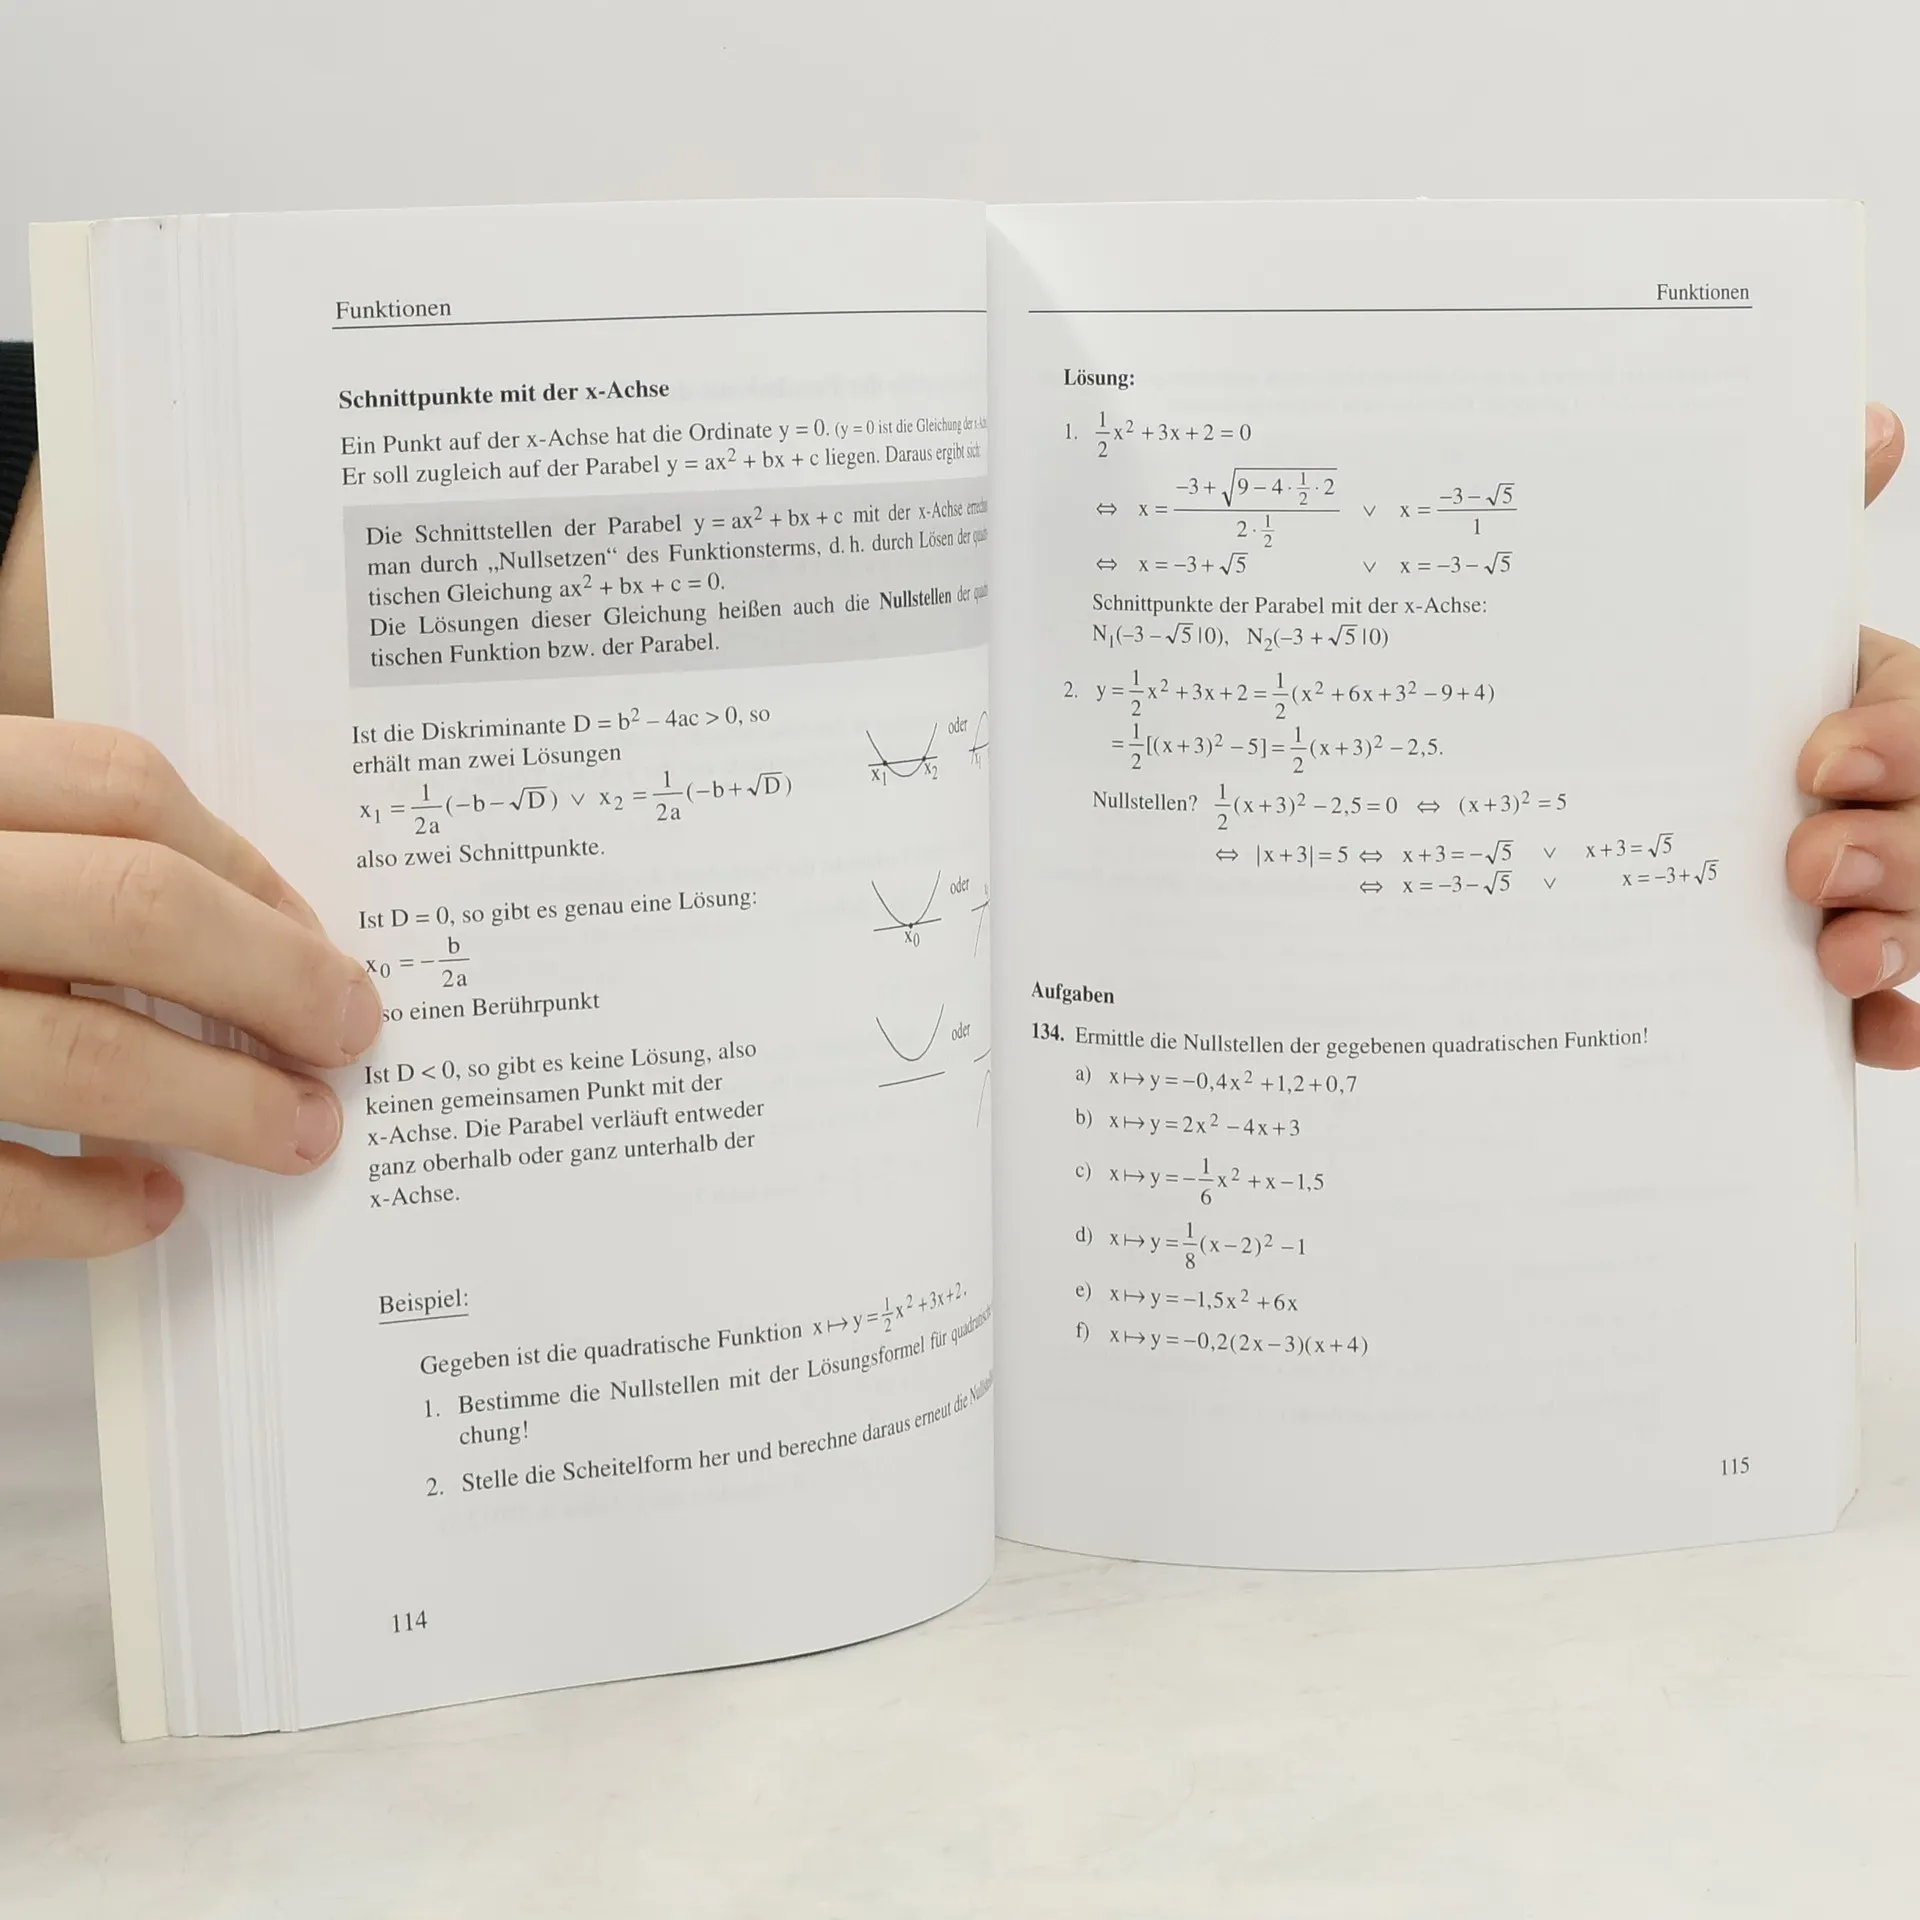 Funktionen
Schnittpunkte mit der x-Achse
Ein Punkt auf der x-Achse hat die Ordinate y = 0. (y = 0 ist die Gleichung der
Er soll zugleich auf der Parabel y = ax² + bx + c liegen. Daraus ergibt sich:
Die Schnittstellen der Parabel y = ax² + bx + c mit der x-Achse
man durch „Nullsetzen“ des Funktionsterms, d. h. durch Lösen der
tischen Gleichung ax² + bx + c = 0.
Die Lösungen dieser Gleichung heißen auch die Nullstellen der
tischen Funktion bzw. der Parabel.
Ist die Diskriminante D = b² – 4ac > 0, so
erhält man zwei Lösungen
x₁ = 1/2a (–b–√D) ∨ x₂ = 1/2a (–b+√D)
also zwei Schnittpunkte.
x₁ x₂ oder
Ist D = 0, so gibt es genau eine Lösung:
x₀ = – b/2a
so einen Berührpunkt
x₀ oder
Ist D < 0, so gibt es keine Lösung, also
keinen gemeinsamen Punkt mit der
x-Achse. Die Parabel verläuft entweder
ganz oberhalb oder ganz unterhalb der
x-Achse.
oder
Beispiel:
Gegeben ist die quadratische Funktion x ↦ y = 1/2 x² + 3x + 2.
1. Bestimme die Nullstellen mit der Lösungsformel für
chung!
2. Stelle die Scheitelform her und berechne daraus erneut die
114
Funktionen
Lösung:
1. 1/2 x² + 3x + 2 = 0
⇔ x = (–3 + √(9 – 4 · 1/2 · 2))/(2 · 1/2) ∨ x = (–3 – √5)/1
⇔ x = –3 + √5 ∨ x = –3 – √5
Schnittpunkte der Parabel mit der x-Achse:
N₁(–3 – √5 | 0), N₂(–3 + √5 | 0)
2. y = 1/2 x² + 3x + 2 = 1/2 (x² + 6x + 3² – 9 + 4)
= 1/2 [(x + 3)² – 5] = 1/2 (x + 3)² – 2,5.
Nullstellen? 1/2 (x + 3)² – 2,5 = 0 ⇔ (x + 3)² = 5
⇔ |x + 3| = 5 ⇔ x + 3 = –√5 ∨ x + 3 = √5
⇔ x = –3 – √5 ∨ x = –3 + √5
Aufgaben
134. Ermittle die Nullstellen der gegebenen quadratischen Funktion!
a) x ↦ y = –0,4x² + 1,2 + 0,7
b) x ↦ y = 2x² – 4x + 3
c) x ↦ y = –1/6 x² + x – 1,5
d) x ↦ y = 1/8 (x – 2)² – 1
e) x ↦ y = –1,5x² + 6x
f) x ↦ y = –0,2(2x – 3)(x + 4)
115